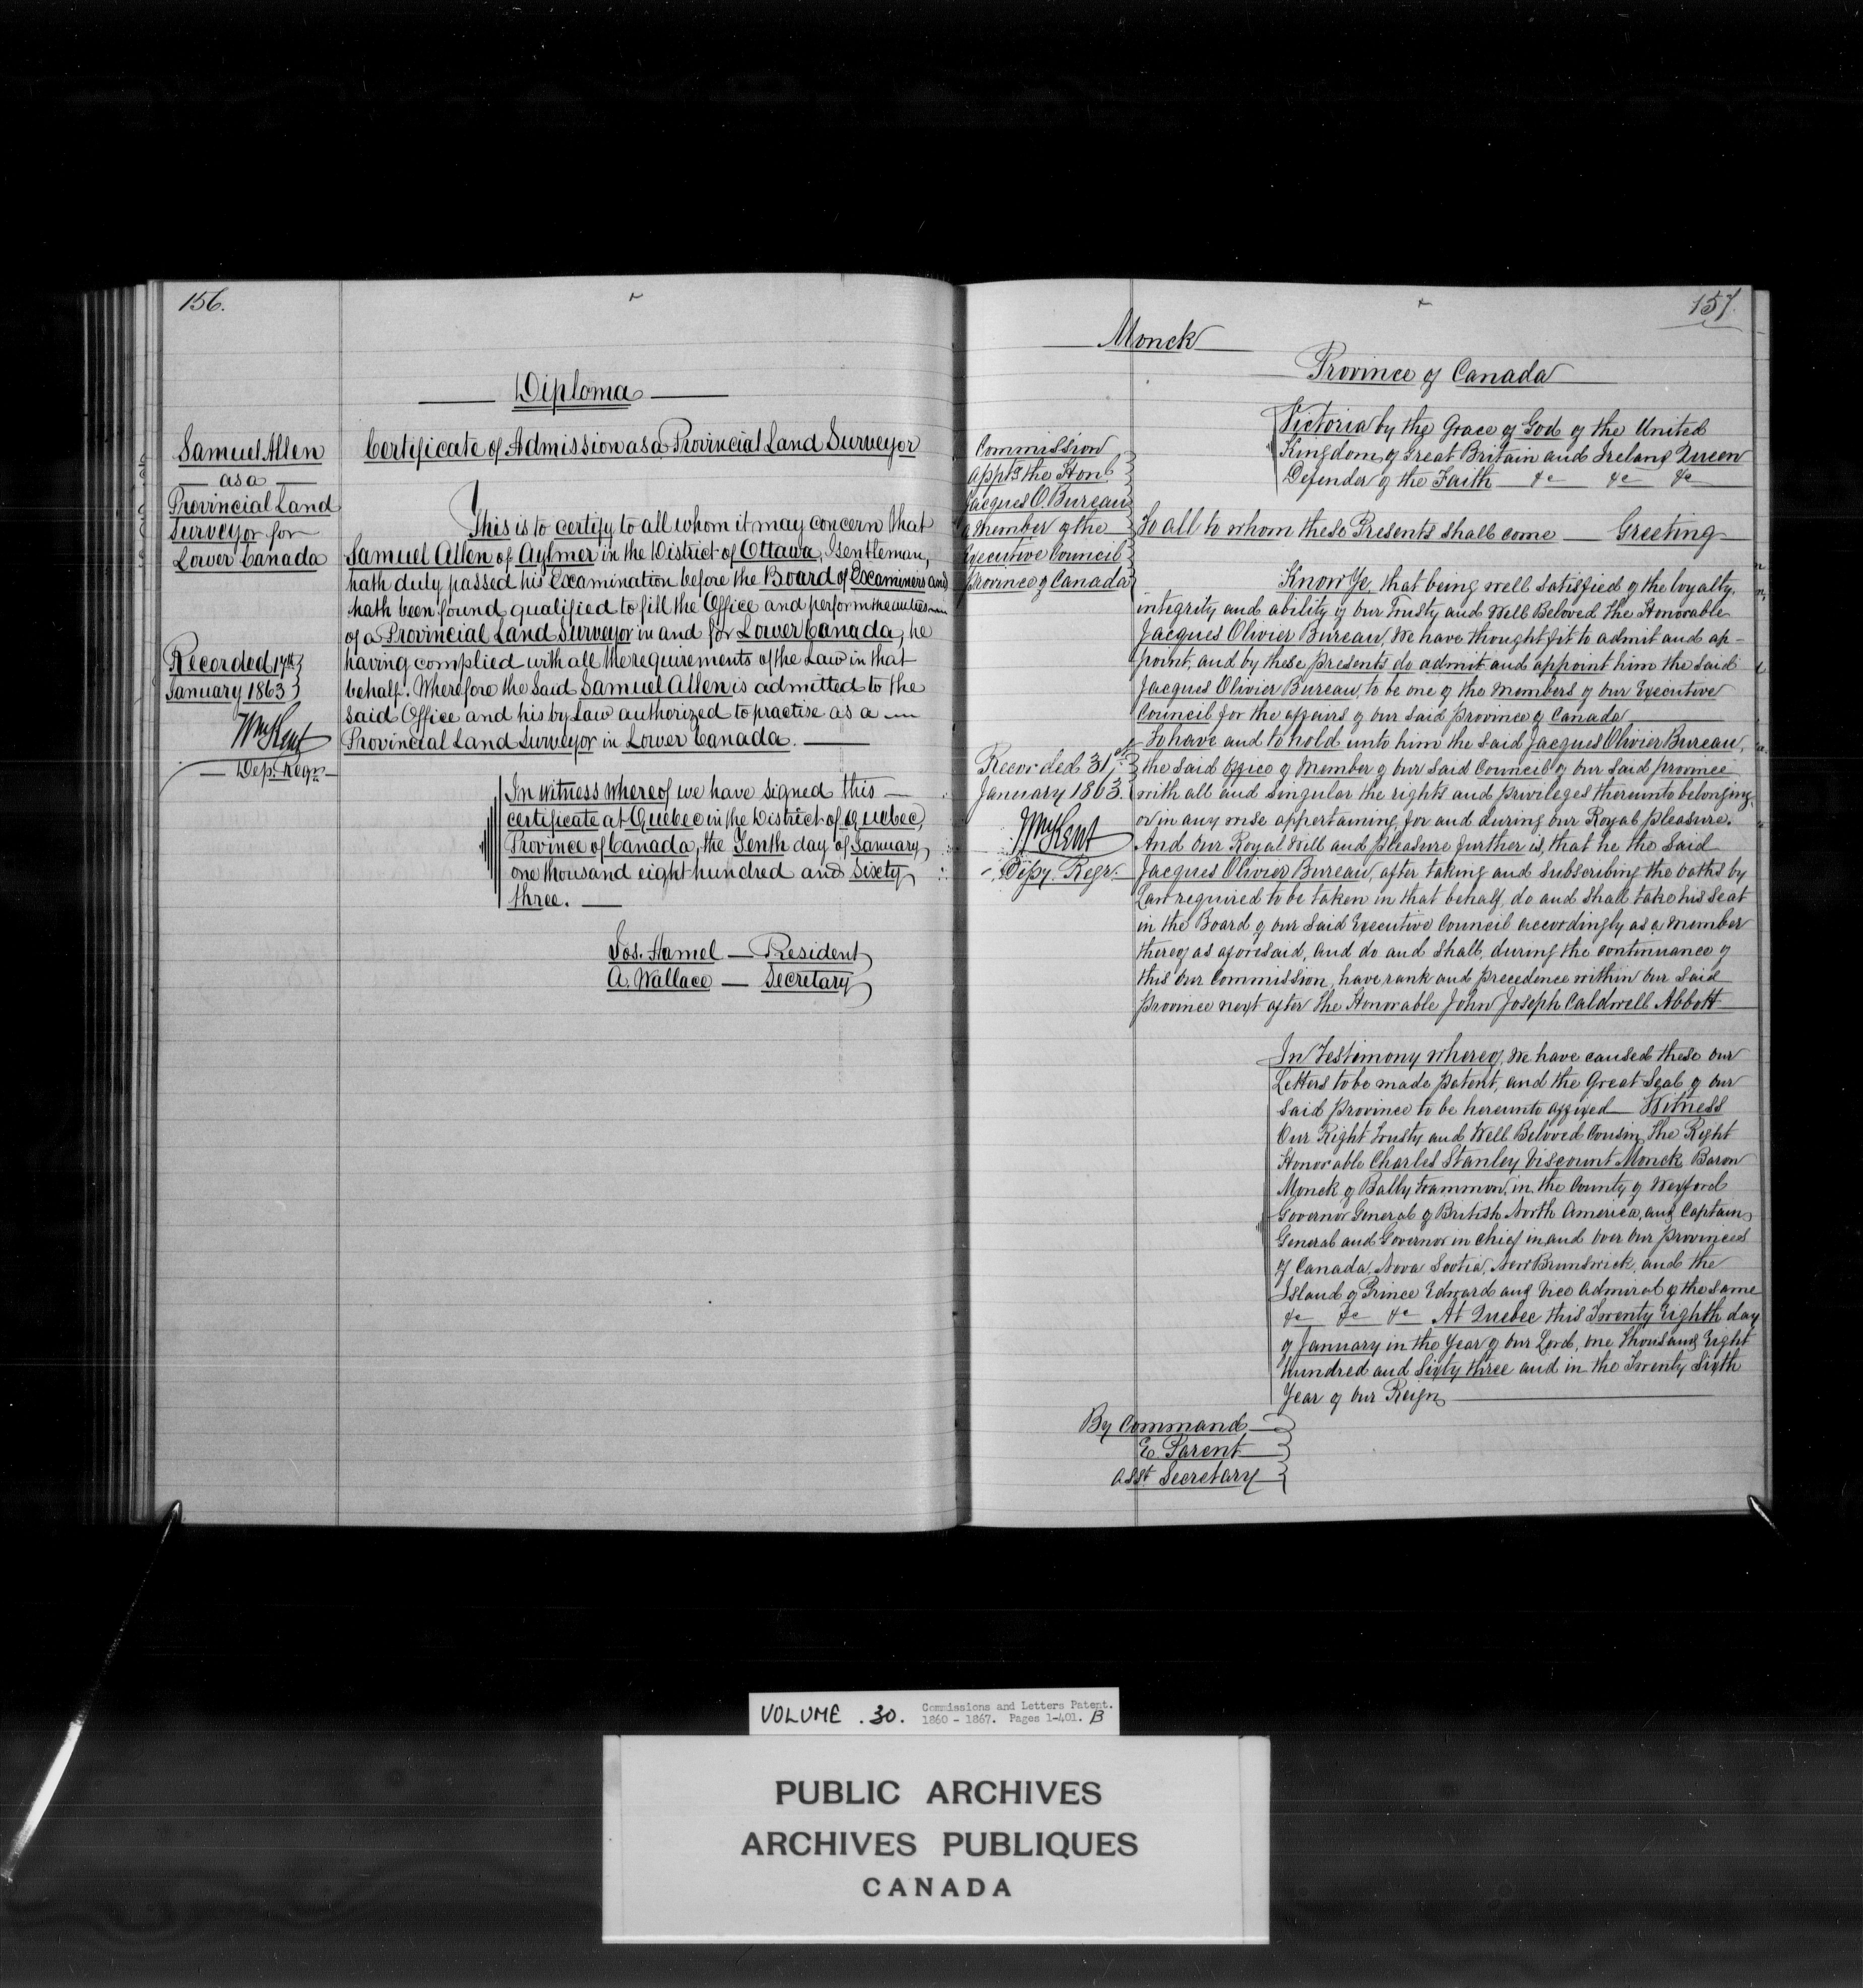 156.
Diploma
Samuel Allen
as a
Provincial Land
Surveyor for
Lower Canada
Recorded 17th
January 1863
Wm Kent
Dep. Regr
Certificate of Admission as a Provincial Land Surveyor
This is to certify to all whom it may concern that
Samuel Allen of Aylmer in the District of Ottawa, Gentleman,
hath duly passed his Examination before the Board of Examiners and
hath been found qualified to fill the Office and perform the duties
of a Provincial Land Surveyor in and for Lower Canada, he
having complied with all the requirements of the Law in that
behalf. Wherefore the said Samuel Allen is admitted to the
said Office and his by Law authorized to practise as a
Provincial Land Surveyor in Lower Canada.
In witness whereof we have signed this
certificate at Quebec in the District of Quebec,
Province of Canada, the Tenth day of January
one thousand eight hundred and Sixty
three.
Jos. Hamel — President
A. Wallace — Secretary
157.
Monck
Province of Canada
Commission
appt'g the Honl.
Jacques O. Bureau
a member of the
Executive Council
Province of Canada
Recorded 31st
January 1863.
Wm Kent
Depy. Regr.
Victoria by the Grace of God of the United
Kingdom of Great Britain and Ireland Queen
Defender of the Faith &c &c &c
To all to whom these Presents shall come — Greeting
Know Ye, that being well satisfied of the loyalty,
integrity and ability of our Trusty and Well Beloved the Honorable
Jacques Olivier Bureau, We have thought fit to admit and ap-
point, and by these presents do admit and appoint him the said
Jacques Olivier Bureau, to be one of the Members of our Executive
Council for the affairs of our said Province of Canada
To have and to hold unto him the said Jacques Olivier Bureau,
the said Office of Member of our said Council of our said province
with all and singular the rights and privileges thereunto belonging,
or in any wise appertaining, for and during our Royal pleasure.
And our Royal Will and Pleasure further is, that he the said
Jacques Olivier Bureau, after taking and subscribing the oaths by
Law required to be taken in that behalf, do and shall take his seat
in the Board of our said Executive Council accordingly as a member
thereof as aforesaid, and do and shall, during the continuance of
this our Commission, have rank and precedence within our said
province next after The Honorable John Joseph Caldwell Abbott
In Testimony whereof, We have caused these our
Letters to be made Patent, and the Great Seal of our
said Province to be hereunto affixed — Witness
Our Right Trusty and Well Beloved Cousin, The Right
Honorable Charles Stanley Viscount Monck, Baron
Monck of Ballytrammon, in the County of Wexford
Governor General of British North America, and Captain
General and Governor in Chief in and over our provinces
of Canada, Nova Scotia, New Brunswick, and the
Island of Prince Edward and Vice Admiral of the same
&c &c &c At Quebec this Twenty Eighth day
of January in the Year of our Lord, one Thousand Eight
hundred and Sixty three and in the Twenty Sixth
Year of our Reign
By Command
E. Parent
Asst. Secretary
VOLUME . 30. Commissions and Letters Patent.
1860 - 1867. Pages 1-401. B
PUBLIC ARCHIVES
ARCHIVES PUBLIQUES
CANADA